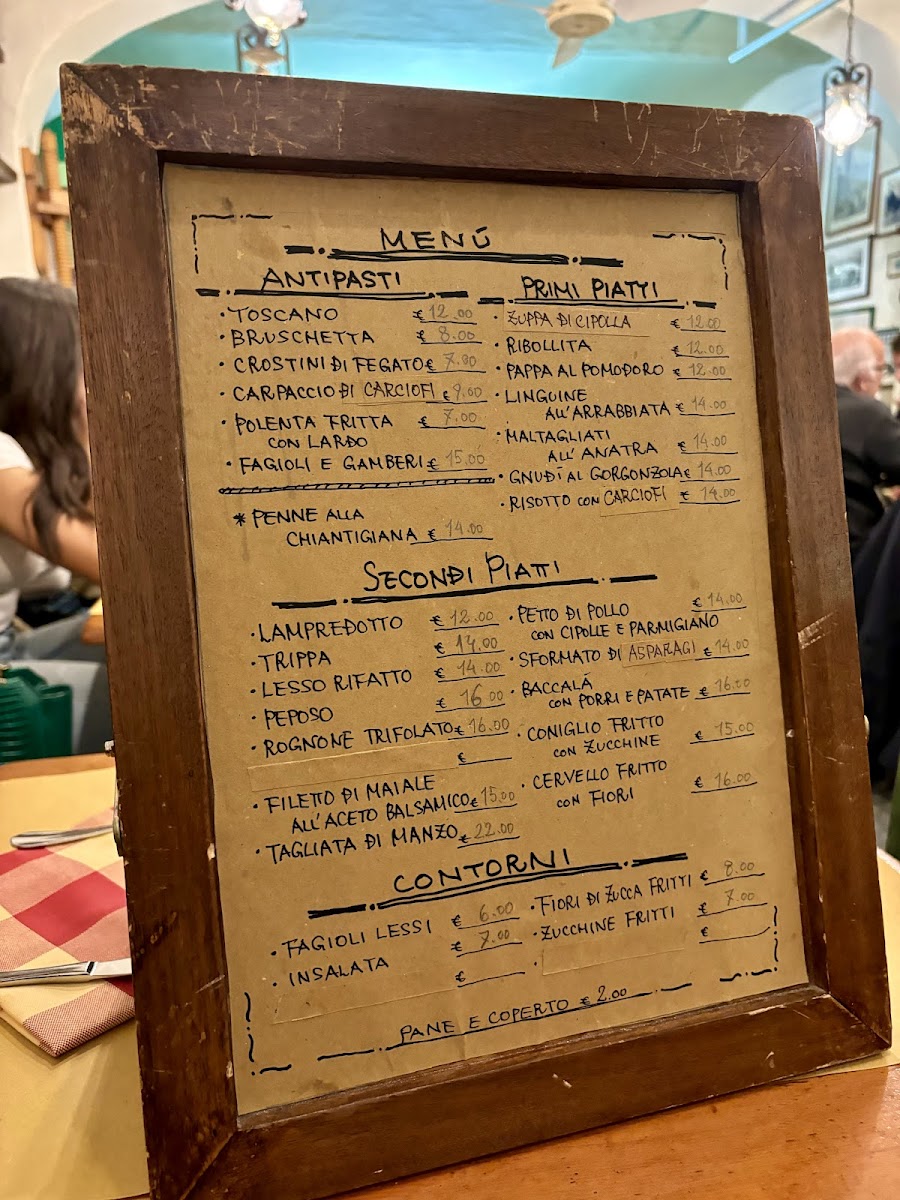 MENÚ
ANTIPASTI
· TOSCANO € 12.00
· BRUSCHETTA € 8.00
· CROSTINI DI FEGATO € 7.00
· CARPACCIO DI CARCIOFI € 9.00
· POLENTA FRITTA € 7.00
CON LARDO
· FAGIOLI E GAMBERI € 15.00
* PENNE ALLA
CHIANTIGIANA € 14.00
PRIMI PIATTI
· ZUPPA DI CIPOLLA € 12.00
· RIBOLLITA € 12.00
· PAPPA AL POMODORO € 12.00
· LINGUINE
ALL'ARRABBIATA € 14.00
· MALTAGLIATI
ALL'ANATRA € 14.00
· GNUDI AL GORGONZOLA € 14.00
· RISOTTO CON CARCIOFI € 14.00
SECONDI PIATTI
· LAMPREDOTTO € 12.00
· TRIPPA € 14.00
· LESSO RIFATTO € 14.00
· PEPOSO € 16.00
· ROGNONE TRIFOLATO € 16.00
€
· FILETTO DI MAIALE
ALL'ACETO BALSAMICO € 15.00
· TAGLIATA DI MANZO € 22.00
· PETTO DI POLLO € 14.00
CON CIPOLLE E PARMIGIANO
· SFORMATO DI ASPARAGI € 14.00
· BACCALÀ
CON PORRI E PATATE € 16.00
· CONIGLIO FRITTO
CON ZUCCHINE € 15.00
· CERVELLO FRITTO
CON FIORI € 16.00
CONTORNI
· FAGIOLI LESSI € 6.00
· INSALATA € 7.00
€
· FIORI DI ZUCCA FRITTI € 8.00
· ZUCCHINE FRITTI € 7.00
€
PANE E COPERTO € 2.00